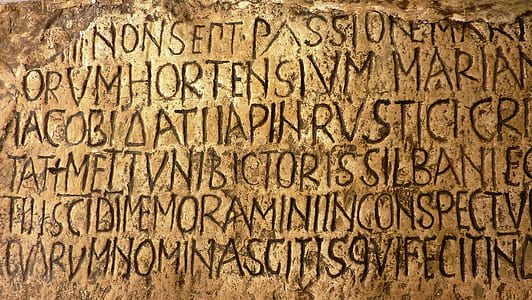 III NON SEPT PASSIONE MART
ORVM HORTENSIVM MARIAN
IACOBI DATI IAPIN RVSTICI CRI
TAT+ METTVNI BICTORIS SILBANI E
TII SCI DI MEMORAMINI IN CONSPECTV
QVARVM NOMINA SCITIS QVI FECIT IN